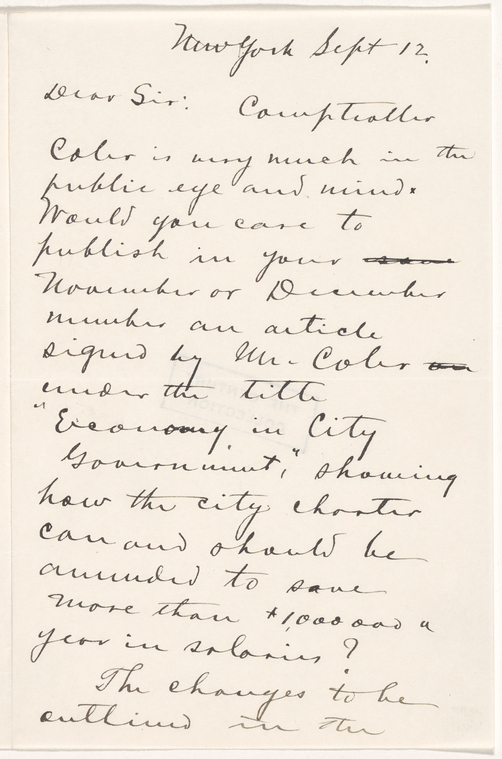 New York Sept 12.
Dear Sir: Comptroller
Coler is very much in the
public eye and mind.
Would you care to
publish in your same
November or December
number an article
signed by Mr. Coler on
under the title
"Economy in City
Government," showing
how the city charter
can and should be
amended to save
more than $1,000,000 a
year in salaries?
The changes to be
outlined in the